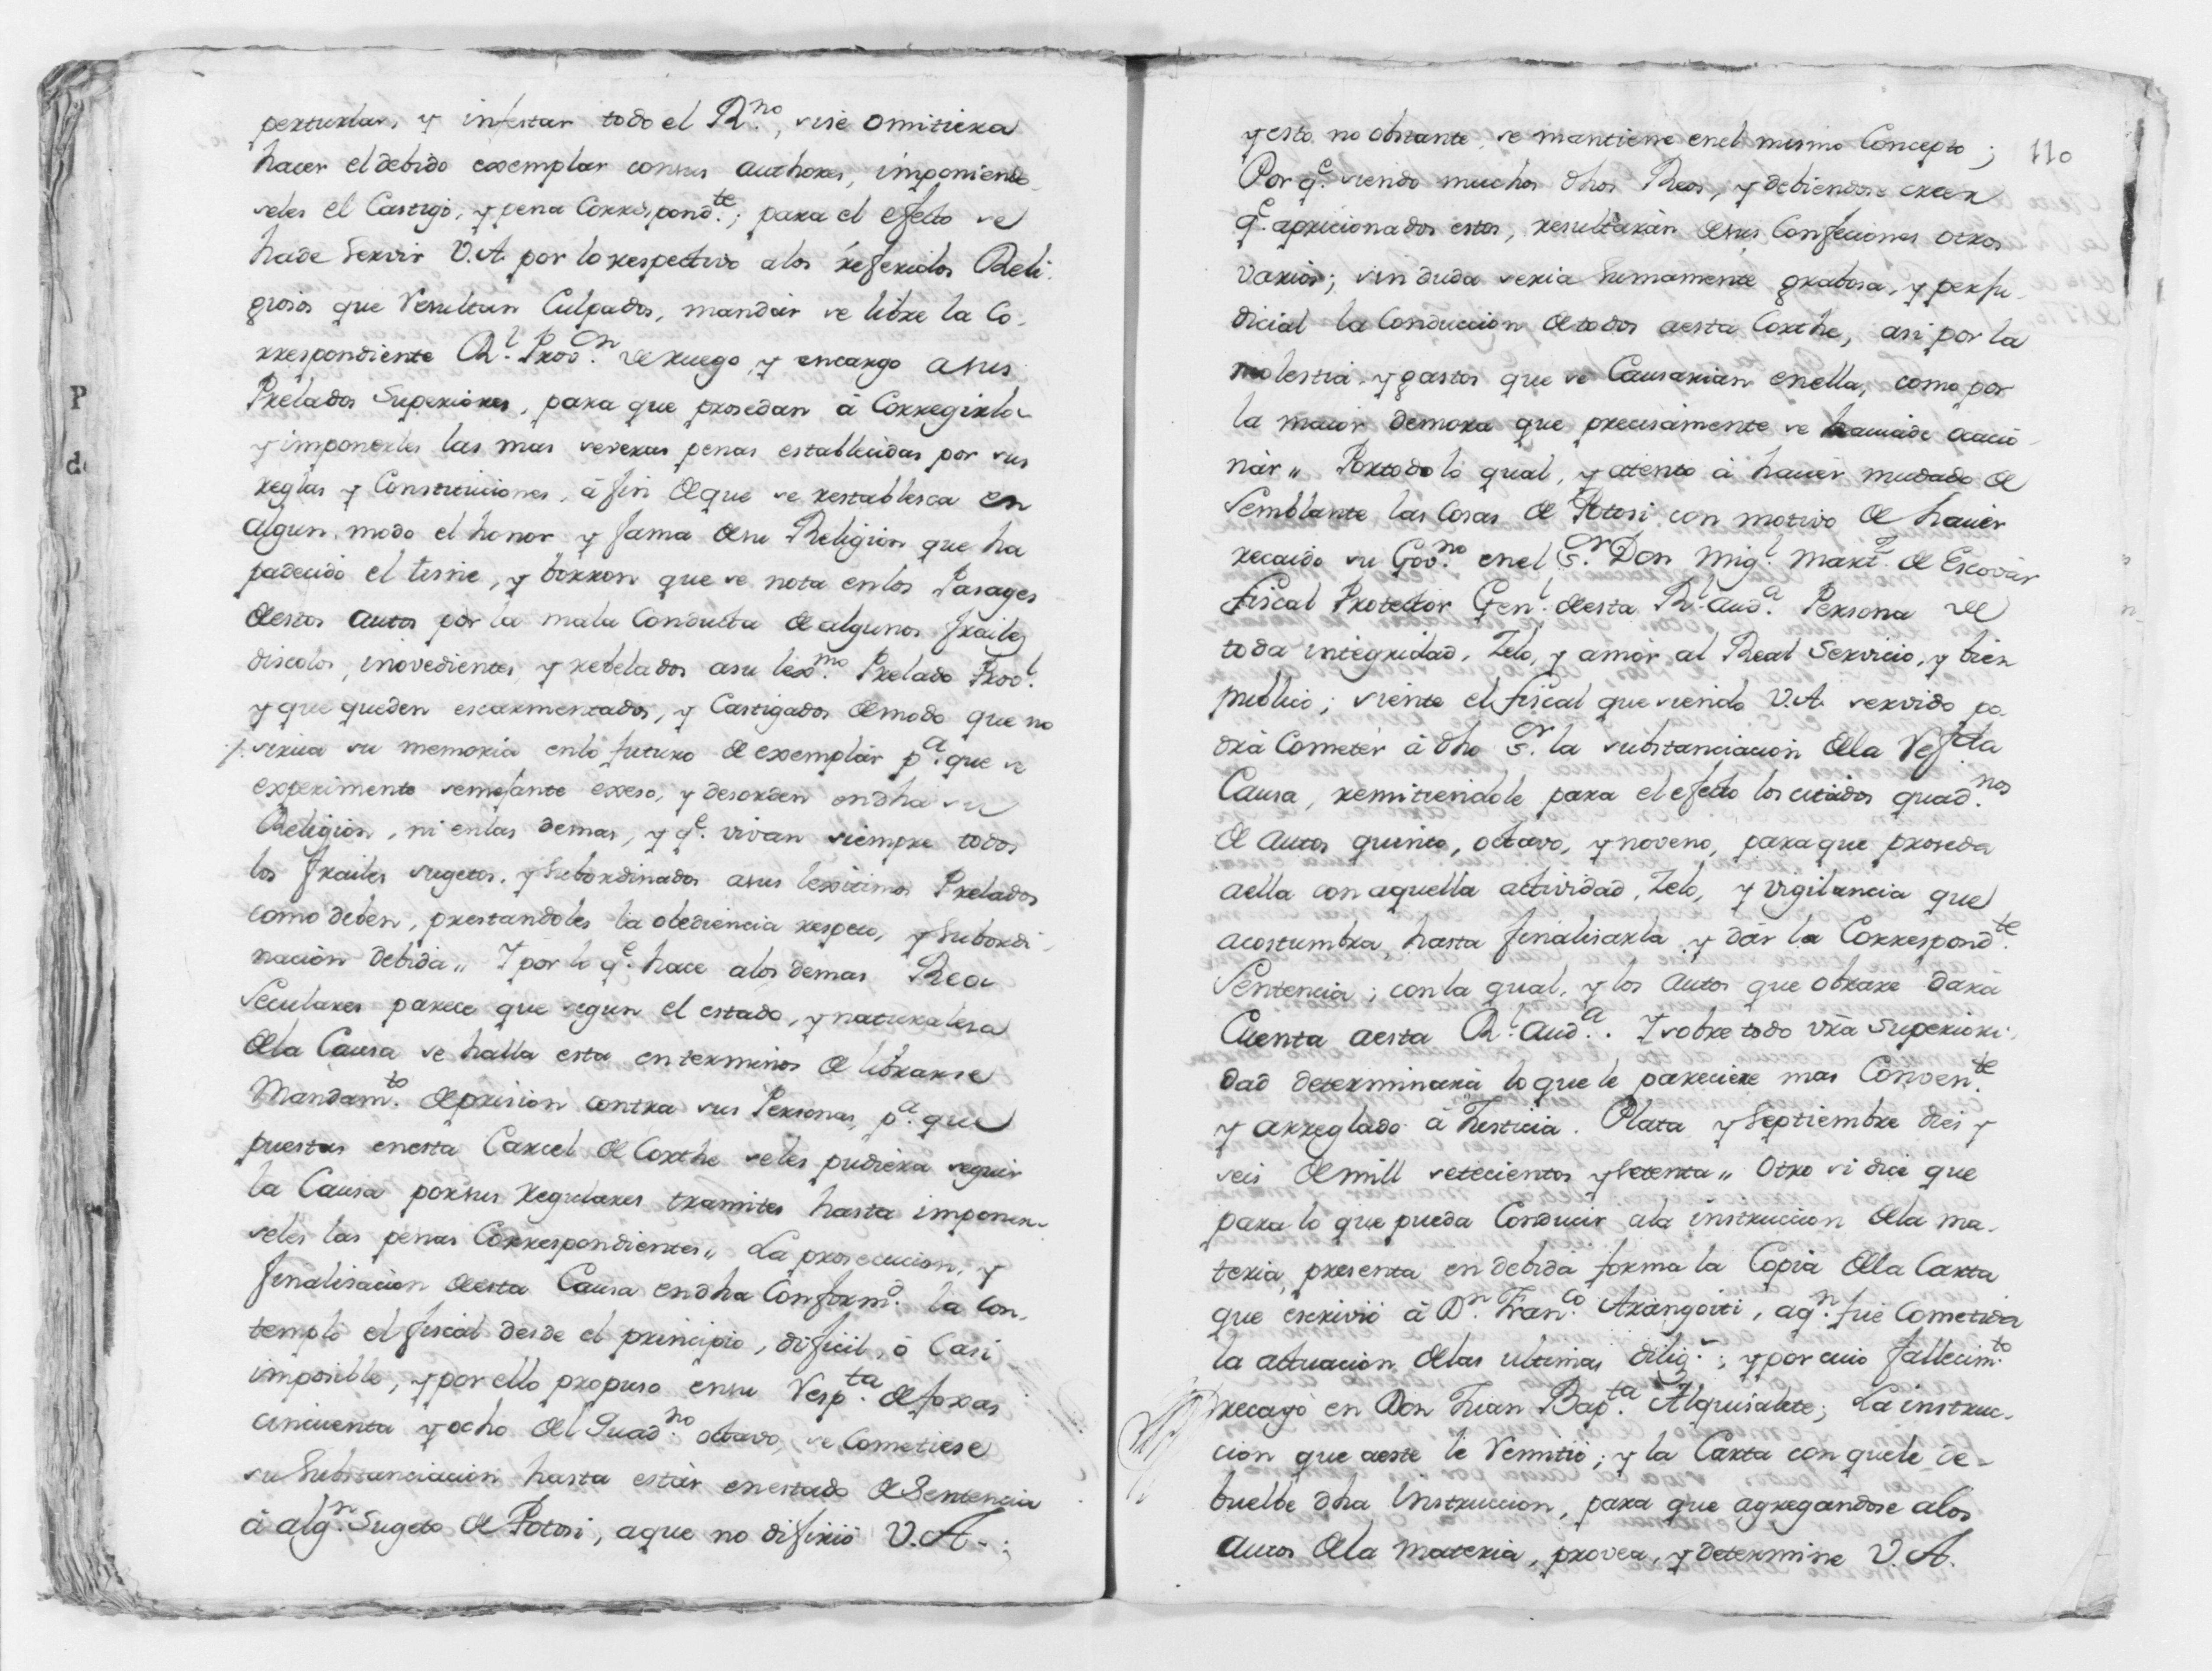 perturbar, y infestar todo el R.no, sise omitiera
hacer el debido exemplar consus authores, imponiendo
seles el Castigo, y pena Correspond.te; para el efecto se
hade Servir V.A. por lo respectivo alos referidos Reli-
giosos que Resultan Culpados, mandar se libre la Co-
rrespondiente R.l Prov.on de ruego, y encargo asus
Prelados Superiores, para que prosedan á Corregirlos
y imponerles las mas severas penas establecidas por sus
reglas y Constituciones, á fin deque se restablesca en
algun modo el honor y fama desu Religion que ha
padecido el tisne, y borron que se nota enlos Pasages
destos autos por la mala Conducta de algunos frailes
discolos, inovedientes, y rebelados asu lexmo. Prelado Prov.l
y que queden escarmentados, y Castigados demodo que no
sirua su memoria enlo futuro de exemplar p.a que se
experimente semejante exeso, y desorden endha su
Religion, ni enlas demas, y q.e vivan siempre todos
los frailes sugetos, y Subordinados asus lexitimos Prelados
como deben, prestandoles la obediencia respeto, y Subordi-
nacion debida,, Y por lo q.e hace alos demas Reos
Seculares parece que segun el estado, y naturalesa
dela Causa se halla esta en terminos de librarse
Mandam.to deprision contra sus Personas, p.a que
puestas enesta Carcel de Corthe seles pudiera seguir
la Causa porsus regulares tramites hasta imponer-
seles las penas Correspondientes,, La prosecucion, y
finalisacion desta Causa endha Conform.d la con-
templó el fiscal desde el principio, dificil, ó Casi
imposible, y por ello propuso ensu Resp.ta de foxas
cincuenta y ocho del Quad.no octavo, se Cometiese
su Substanciacion hasta estár enestado de Sentencia
á alg.n Sugeto de Potosi, aque no difirió V.A.;
110
y esto no obstante, se mantiene enel mismo Concepto;
Por q.e siendo muchos dhos Reos, y debiendose creer
q.e apricionados estos, resultarán desus Confeciones otros
varios; sin duda seria Sumamente grabosa, y perju-
dicial la Conduccion detodos aesta Corthe, asi por la
molestia, y gastos que se Causarian enella, como por
la maior demora que precisamente se hauiade ocacio-
nár,, Portodo lo qual, y atento á hauer mudado de
Semblante las Cosas de Potosi con motivo de hauér
recaido su Gov.no enel S.or Don Mig.l Mart.z de Escovár
Fiscal Protector Gen.l desta R.l Aud.a Persona de
toda integridad, Zelo, y amór al Real Servicio, y bien
publico; siente el fiscal que siendo V.A. servido po-
drá Cometér á dho S.or la substanciacion dela Refda
Causa, remitiendole para el efecto los citados quad.nos
de autos quinto, octavo, y noveno, paraque proseda
aella con aquella actividad, Zelo, y vigilancia que
acostumbra, hasta finalisarla y dár la Correspond.te
Sentencia; conla qual, y los autos que obrare dará
Cuenta aesta R.l Aud.a. Y sobre todo vra Superiori-
dad determinará loque le pareciere mas Conven.te
y arreglado á Justicia. Plata y Septiembre dies y
seis demill setecientos ysetenta,, Otro si dice que
para lo que pueda Conducir ala instruccion dela ma-
teria, presenta en debida forma la Copia dela Carta
que escrivió á D.n Fran.co Arangoiti, aq.n fue Cometida
la actuacion delas ultimas dilig.s; y por cuio fallecim.to
recayó en Don Juan Bap.ta Alquisalete; La instruc-
cion que aeste le Remitió; y la Carta con quele de-
buelbe dha instruccion, para que agregandose alos
autos dela materia, provea, y determine V.A.